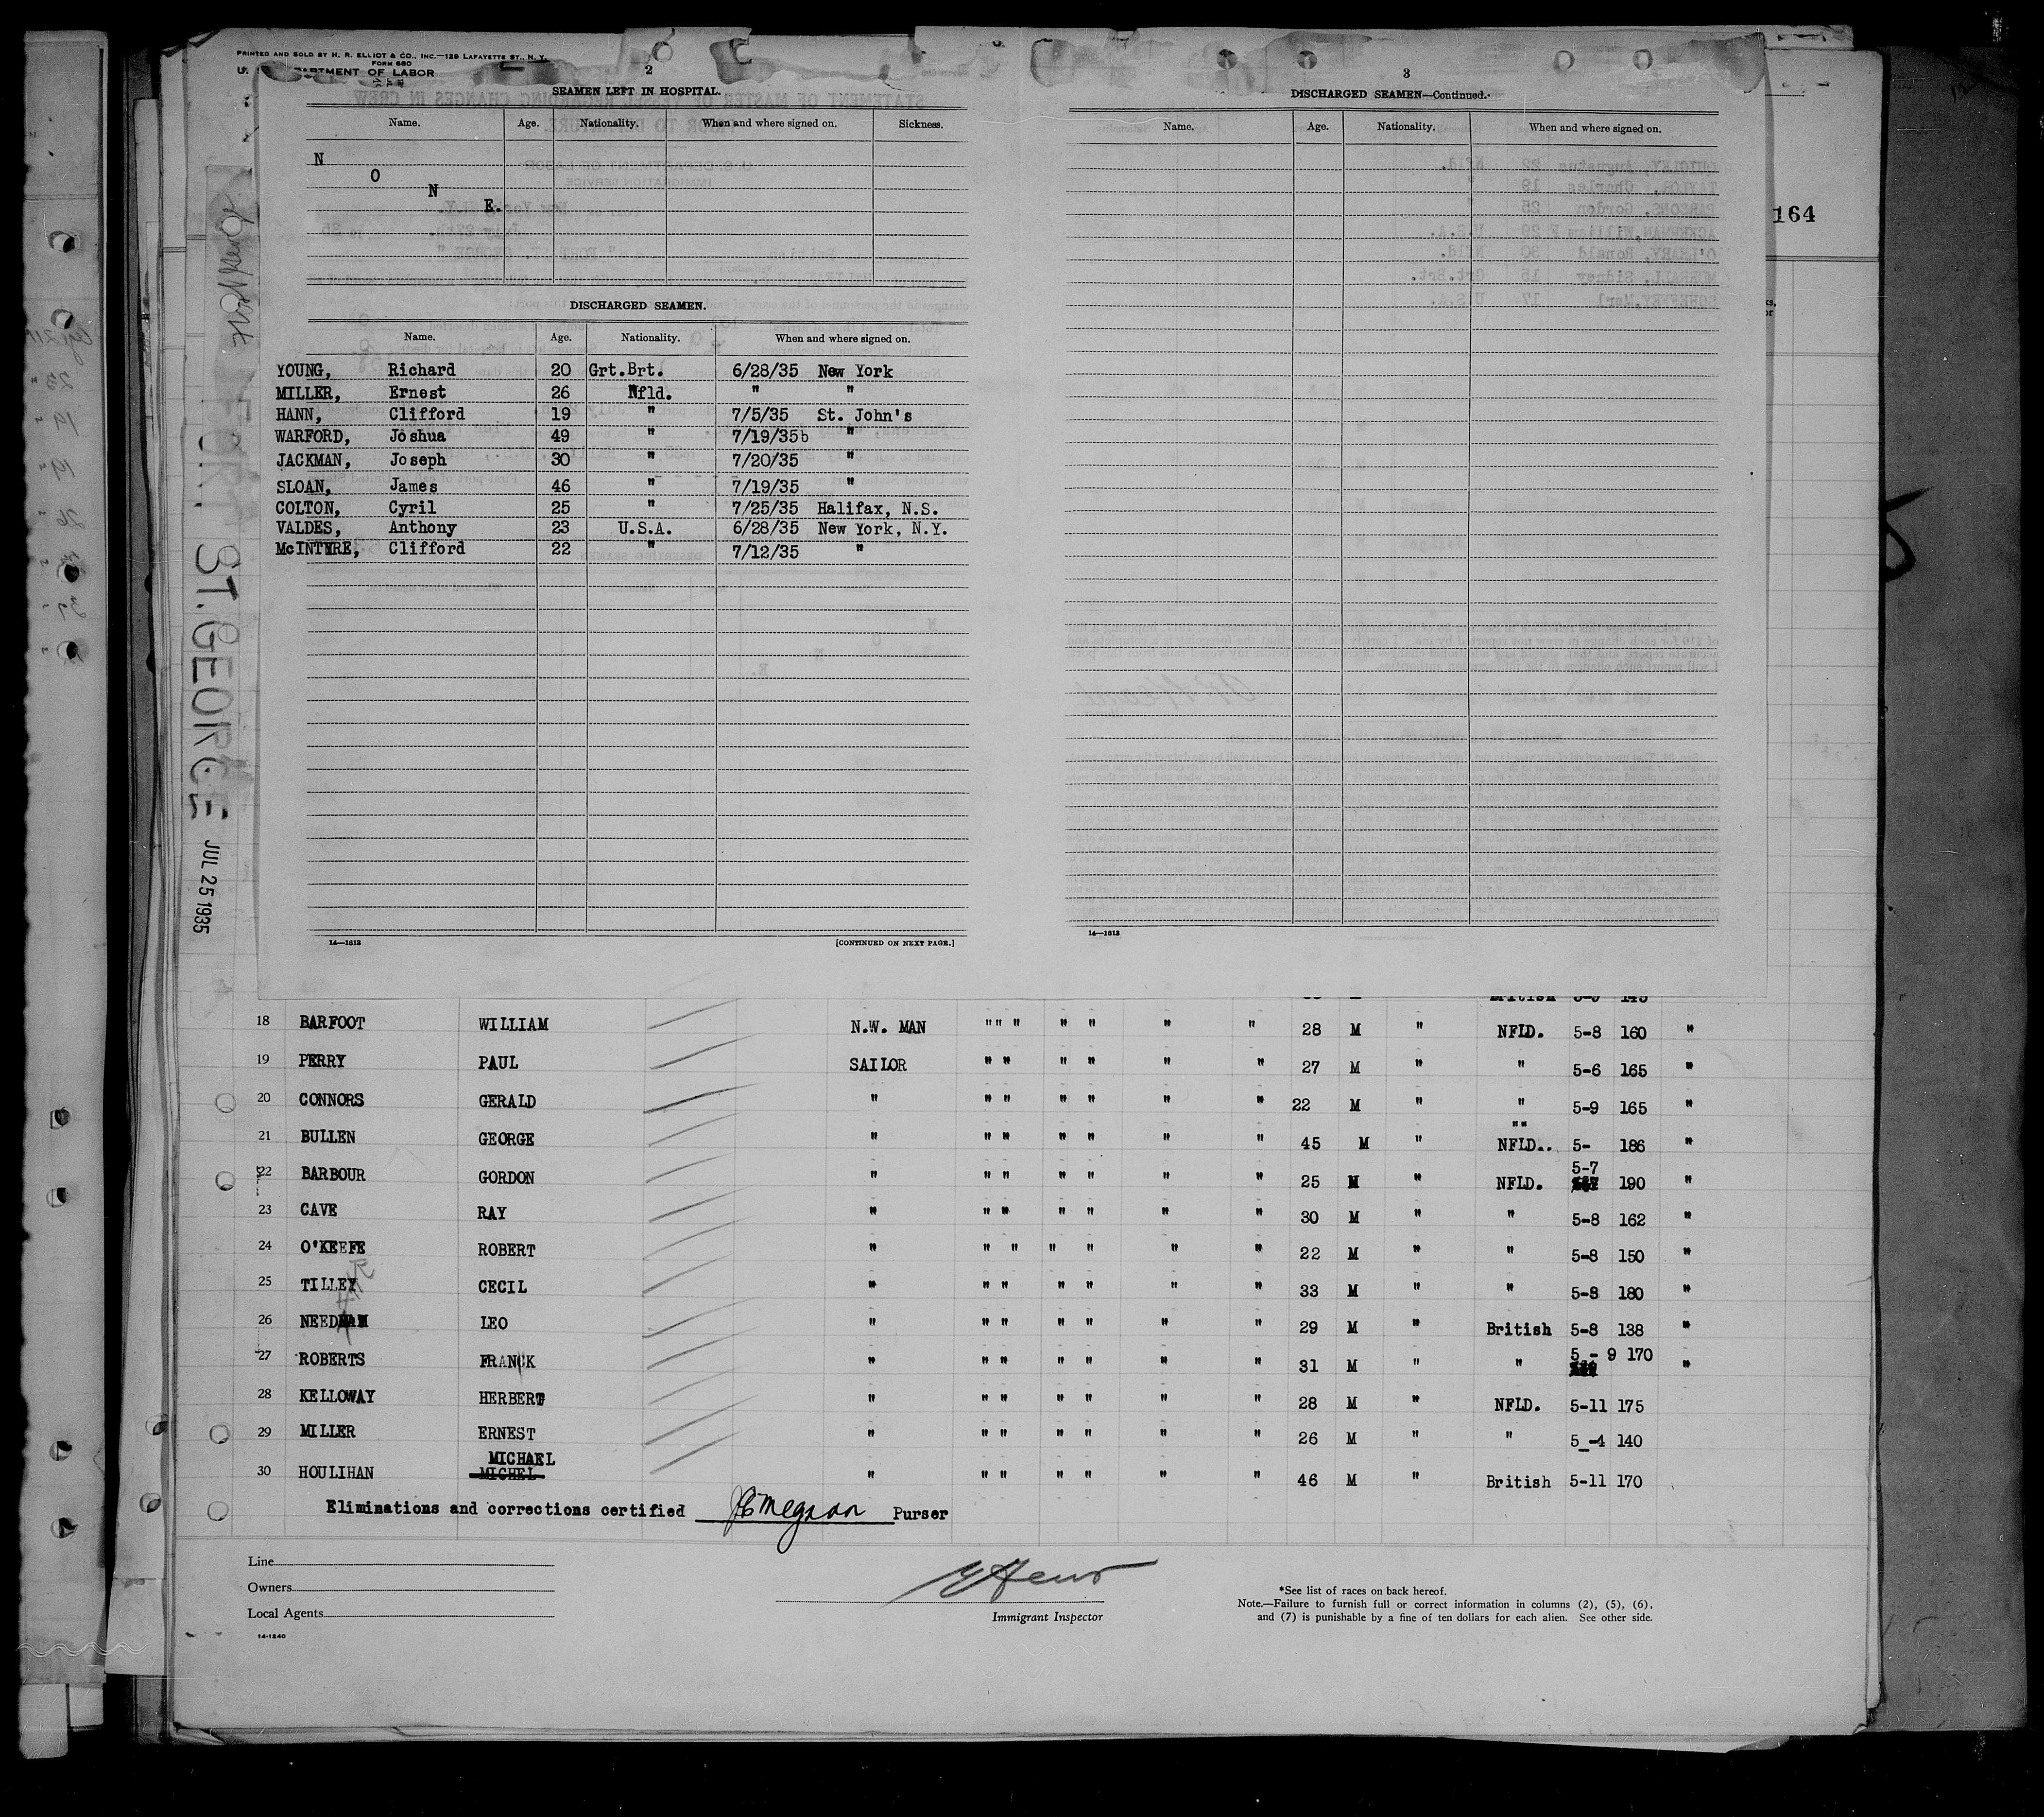 PRINTED AND SOLD BY H. R. ELLIOT & CO., INC.—129 LAFAYETTE ST., N. Y.
FORM 680
U. DEPARTMENT OF LABOR
2
SEAMEN LEFT IN HOSPITAL.
Name. Age. Nationality. When and where signed on. Sickness.
N
O
N
E.
DISCHARGED SEAMEN.
Name. Age. Nationality. When and where signed on.
YOUNG, Richard 20 Grt.Brt. 6/28/35 New York
MILLER, Ernest 26 Nfld. " "
HANN, Clifford 19 " 7/5/35 St. John's
WARFORD, Joshua 49 " 7/19/35b "
JACKMAN, Joseph 30 " 7/20/35 "
SLOAN, James 46 " 7/19/35 "
COLTON, Cyril 25 " 7/25/35 Halifax, N.S.
VALDES, Anthony 23 U.S.A. 6/28/35 New York, N.Y.
McINTYRE, Clifford 22 " 7/12/35 "
14—1613
[CONTINUED ON NEXT PAGE.]
3
DISCHARGED SEAMEN—Continued.
Name. Age. Nationality. When and where signed on.
14—1613
164
ST. GEORGE
JUL 25 1935
18 BARFOOT WILLIAM N.W. MAN "" " " " " " 28 M " NFLD. 5-8 160 "
19 PERRY PAUL SAILOR " " " " " " 27 M " " 5-6 165 "
20 CONNORS GERALD " " " " " " " 22 M " " 5-9 165 "
21 BULLEN GEORGE " " " " " " " 45 M " "" NFLD.. 5- 186 "
22 BARBOUR GORDON " " " " " " " 25 M " NFLD. 5-7 190 "
23 CAVE RAY " " " " " " " 30 M " " 5-8 162 "
24 O'KEEFE ROBERT " " " " " " " 22 M " " 5-8 150 "
25 TILLEY CECIL " " " " " " " 33 M " " 5-8 180 "
26 NEEDHAM LEO " " " " " " " 29 M " British 5-8 138 "
27 ROBERTS FRANCK " " " " " " " 31 M " " 5 - 9 170 "
28 KELLOWAY HERBERT " " " " " " " 28 M " NFLD. 5-11 175
29 MILLER ERNEST " " " " " " " 26 M " " 5_-4 140
MICHAEL
30 HOULIHAN MICHEL " " " " " " " 46 M " British 5-11 170
Eliminations and corrections certified Purser
Line
Owners
Local Agents
14-1240
Immigrant Inspector
*See list of races on back hereof.
Note.—Failure to furnish full or correct information in columns (2), (5), (6),
and (7) is punishable by a fine of ten dollars for each alien. See other side.